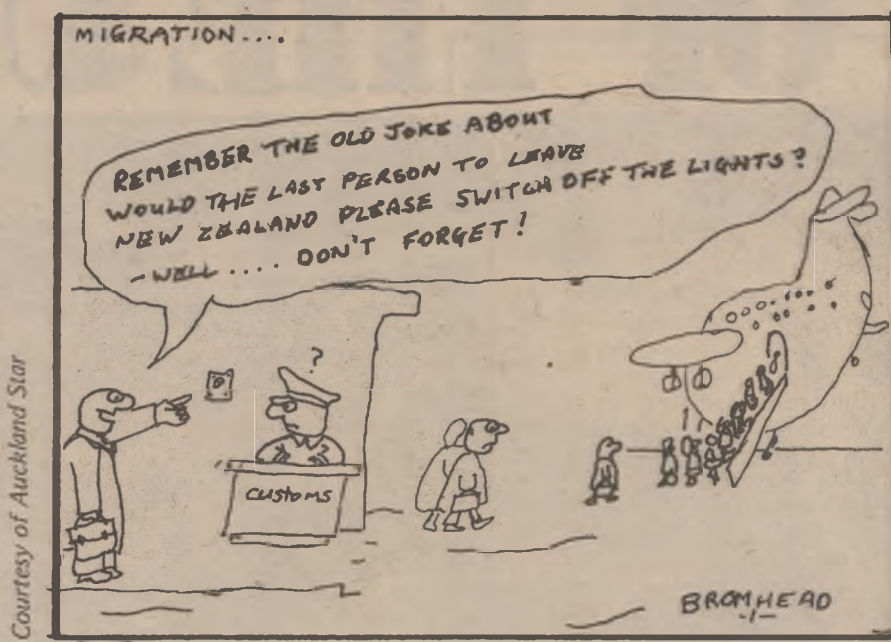 MIGRATION....
REMEMBER THE OLD JOKE ABOUT
WOULD THE LAST PERSON TO LEAVE
NEW ZEALAND PLEASE SWITCH OFF THE LIGHTS?
- WELL.... DON'T FORGET!
?
CUSTOMS
BROMHEAD
-1-
Courtesy of Auckland Star